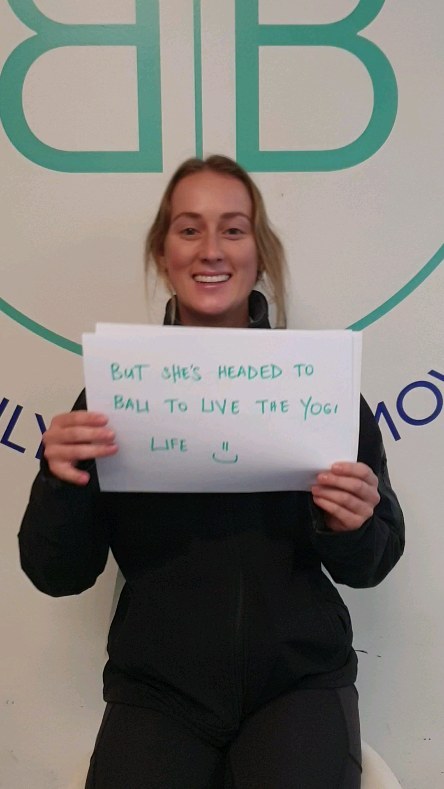 B B
LY
MOV
BUT SHE'S HEADED TO
BALI TO LIVE THE YOGI
LIFE